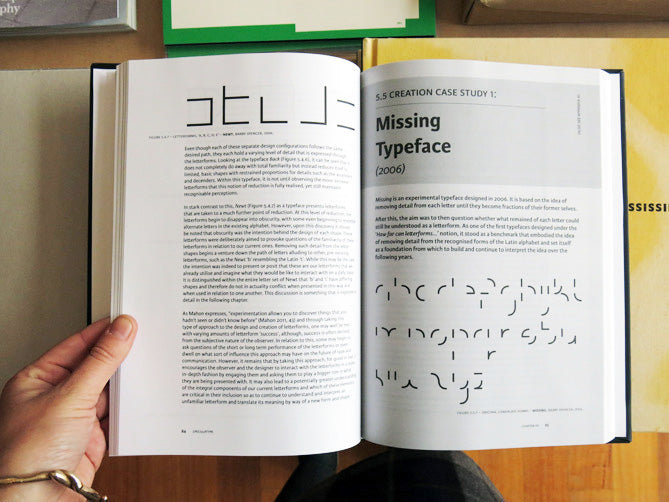 phy
FIGURE 5.4.7 – LETTERFORMS 'A, B, C, D, E' – NEWT, BARRY SPENCER, 2004.
Even though each of these separate design configurations follows the same
desired path, they each hold a varying level of detail that is expressed through
the letterforms. Looking at the typeface Back (Figure 5.4.6), it can be seen that it
does not completely do away with total familiarity but instead reduces itself to
limited, basic shapes with restrained proportions for details such as the ascenders
and decenders. Within this typeface, it is not until observing the more
letterforms that this notion of reduction is fully realised, yet still maintains
recognisable perceptions.
In stark contrast to this, Newt (Figure 5.4.7) as a typeface presents letterforms
that are taken to a much further point of reduction. At this level of reduction, the
letterforms begin to disappear into obscurity, with some even beginning to
alternate letters in the existing alphabet. However, upon this discovery it should
be noted that obscurity was the intention behind the design of each shape. These
letterforms were deliberately aimed to provoke questions of the familiarity of
letterforms in relation to our current ones. Removing such detail from the letter
shapes begins a venture down the path of letters alluding to other, pre-existing
letterforms, such as the Newt 'b' resembling the Latin 't'. While this may be the case
the intention was indeed to present or posit that these are our letterforms that we
already utilise and imagine what they would be like to interact with on a daily
It is distinguished within the entire letter set of Newt that 'b' and 't' have differing
shapes and therefore do not in actuality conflict when presented in this way and
when used in relation to one another. This discussion is something that is explored in
detail in the following chapter.
As Mahon expresses, "experimentation allows you to discover things that you
hadn't seen or didn't know before" (Mahon 2011, 43) and through taking this
type of approach to the design and creation of letterforms, one may well be met
with varying amounts of letterform 'success', although, success is often derived
from the subjective nature of the observer. In relation to this, some may begin to
ask questions of the short or long term performance of the letterforms or even
dwell on what sort of influence this approach may have on the future of type and
communication. However, it remains that by taking this approach, for good or bad, it
encourages the observer and the designer to interact with the letterforms in a more
in-depth fashion by engaging them and asking them to play a bigger role in what
they are being presented with. It may also lead to a potentially greater understanding
of the integral components of our current letterforms and which of these elements
are critical in their inclusion so as to continue to understand and interpret an
unfamiliar letterform and translate its meaning by way of a new form and shape.
84 SPECULATYPE
5.5 CREATION CASE STUDY 1:
Missing
Typeface
(2006)
Missing is an experimental typeface designed in 2006. It is based on the idea of
removing detail from each letter until they become fractions of their former selves.
After this, the aim was to then question whether what remained of each letter could
still be understood as a letterform. As one of the first typefaces designed under the
'How far can letterforms...' notion, it stood as a benchmark that embodied the idea
of removing detail from the recognised forms of the Latin alphabet and set itself
as a foundation from which to build and continue to interpret the idea over the
following years.
SSISSI